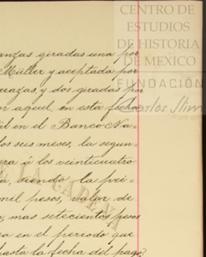 CENTRO DE
ESTUDIOS
DE HISTORIA
DE MEXICO
FUNDACIÓN
Carlos Slim
anzas giradas una por
Müller y aceptada por
eranzas y dos giradas por
n aquel, en esta fecha
il en el Banco Na-
los seis meses, la segun-
era á los veinticuatro
ta, siendo la pri-
mil pesos, valor de
o, mas setecientos pesos
ra en el periodo que
hasta la fecha del pago